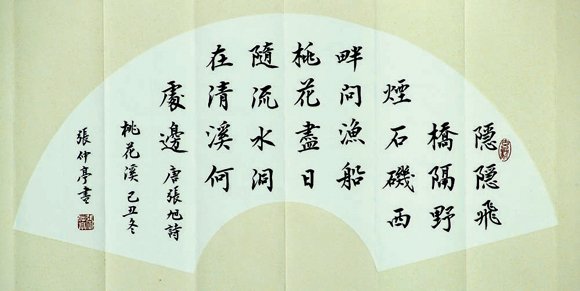 隱隱飛
橋隔野
煙石磯西
畔問漁船
桃花盡日
隨流水洞
在清溪何
處邊 唐張旭詩
桃花溪 己丑冬
張仲亭書